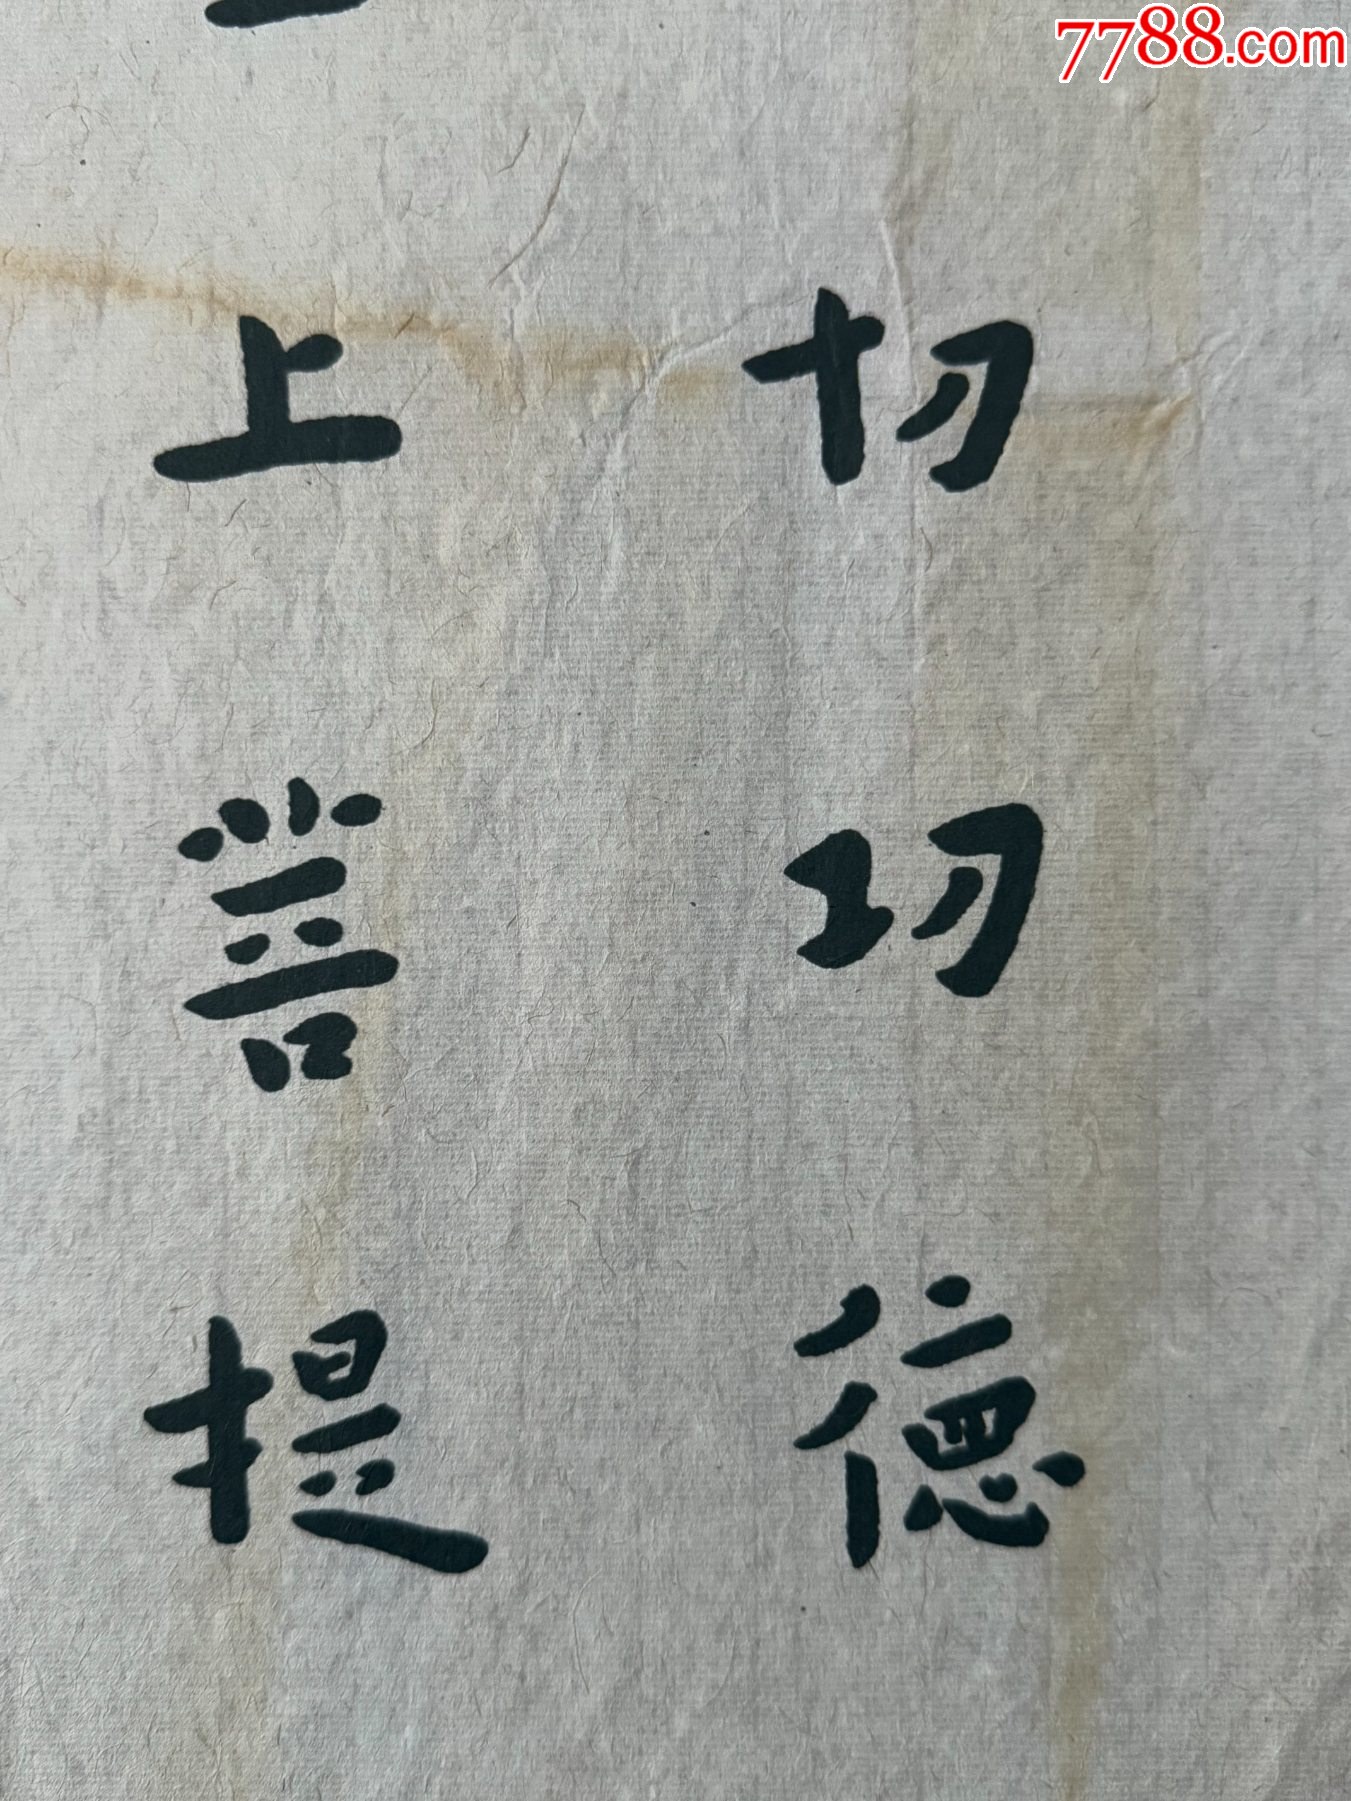 7788.com
切功德
上菩提